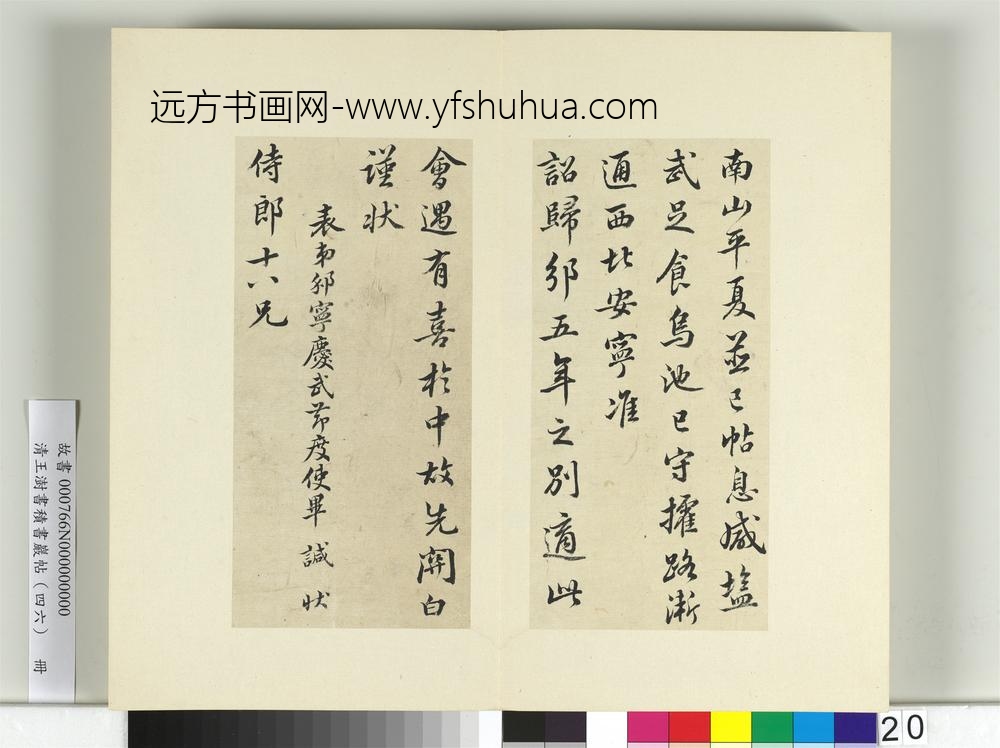 远方书画网-www.yfshuhua.com
南山平夏並已帖息咸塩
武足食烏池已守擢路漸
通西北安寧准
詔歸邠五年之別適此
會遇有喜於中故先開白
謹状
表弟邠寧慶武節度使畢 諴 状
侍郎十八兄
故書 000766N000000000
清王澍書積書巖帖（四六） 冊
20